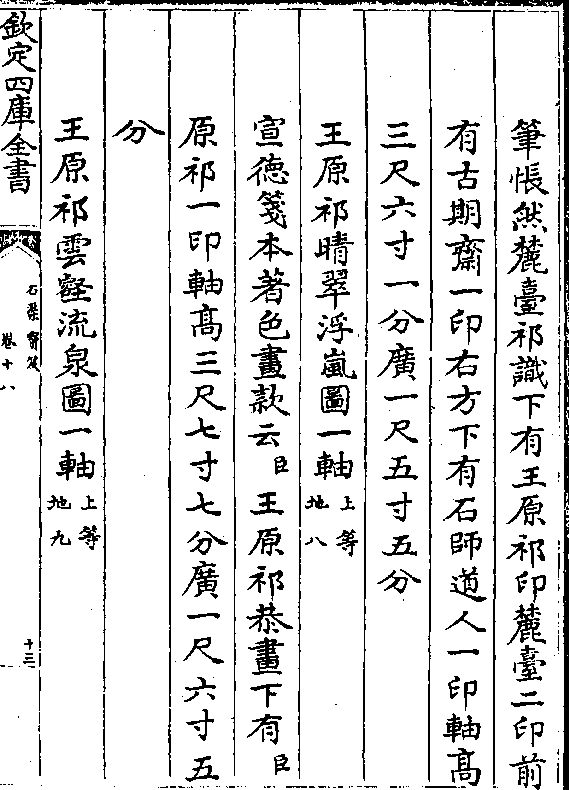 筆悵然麓臺祁識下有王原祁印麓臺二印前
有古期齋一印右方下有石師道人一印軸髙
三尺六寸一分廣一尺五寸五分
王原祁晴翠浮嵐圖一軸 上等 地八
宣徳箋本著色畫款云臣王原祁恭畫下有臣
原祁一印軸髙三尺七寸七分廣一尺六寸五
分
王原祁雲壑流泉圖一軸 上等 地九
欽定四庫全書
石渠寳笈
卷十八
十三